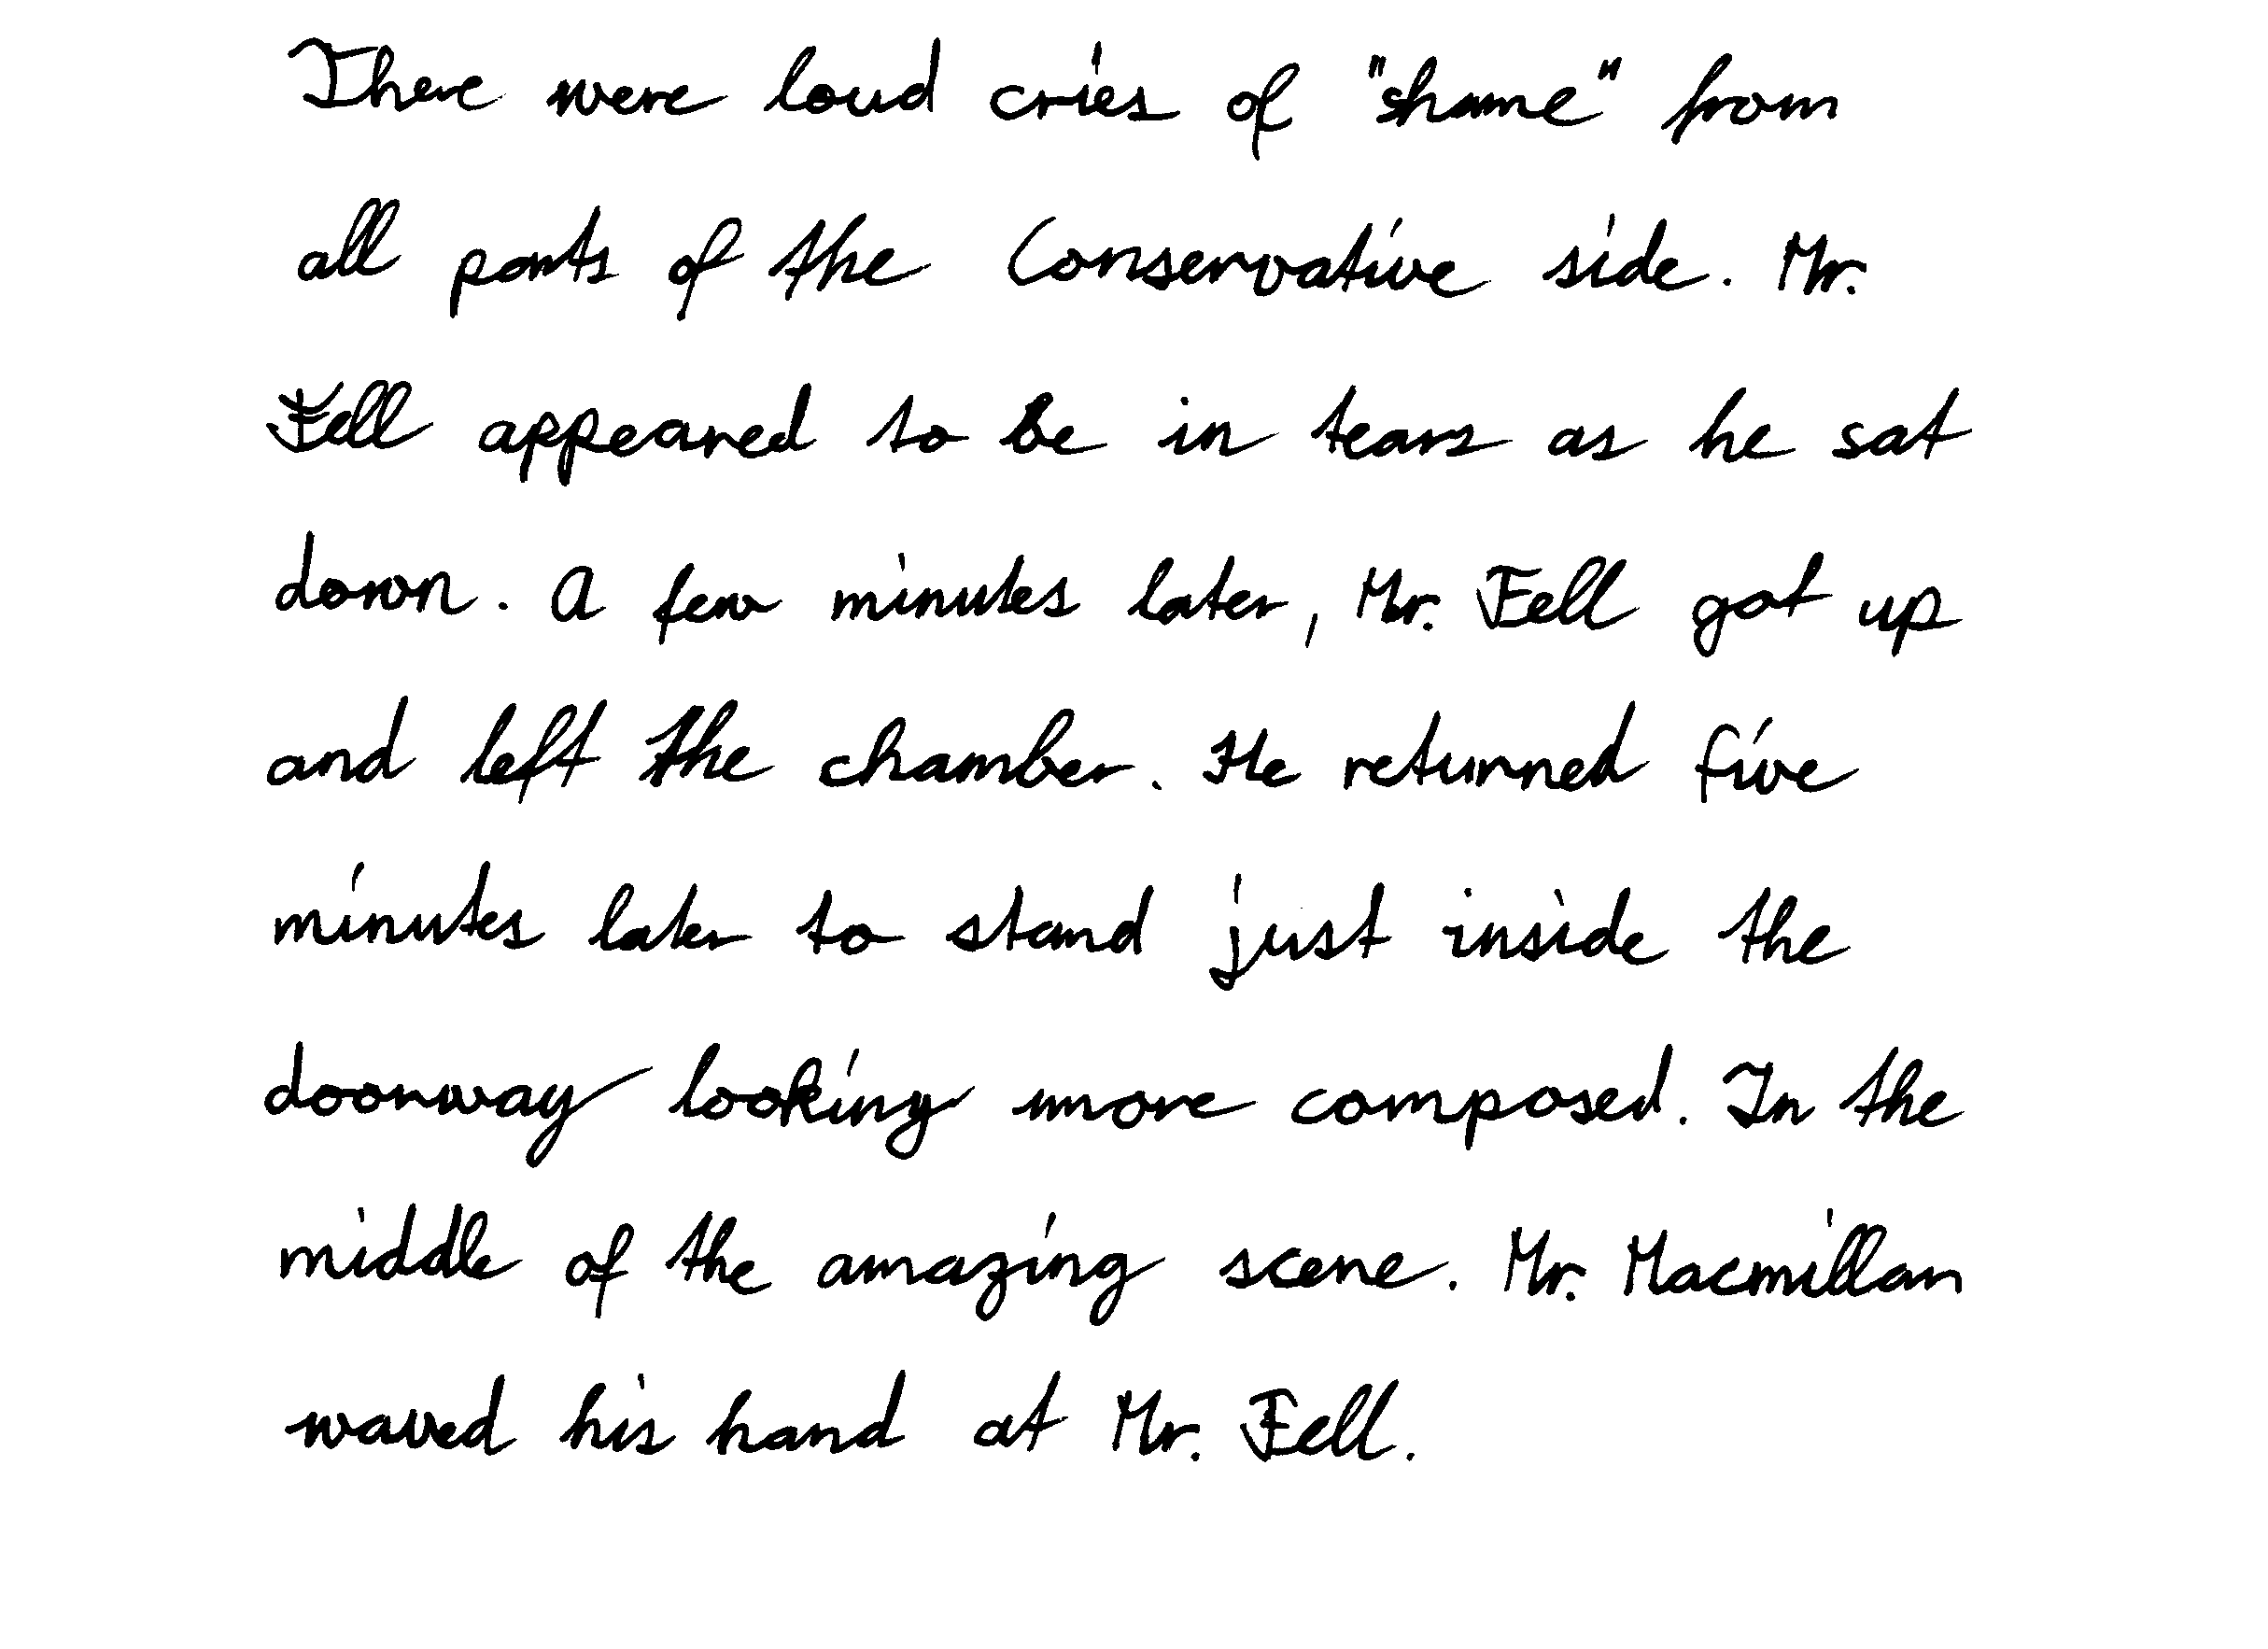 There were loud cries of "shame" from
all parts of the Conservative side. Mr.
Fell appeared to be in tears as he sat
down. A few minutes later, Mr. Fell got up
and left the chamber. He returned five
minutes later to stand just inside the
doorway looking more composed. In the
middle of the amazing scene. Mr. Macmillan
waved his hand at Mr. Fell.